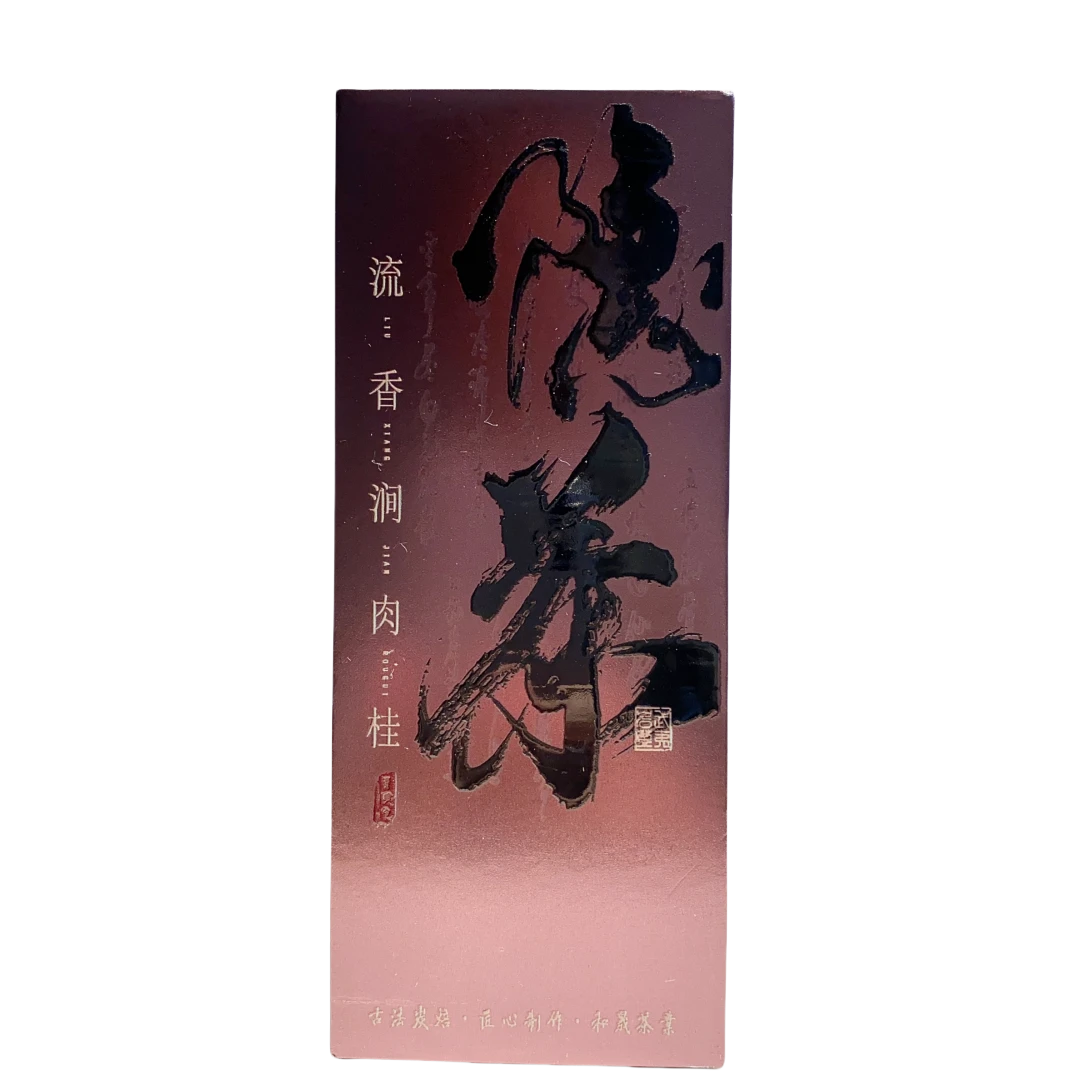 流香涧肉桂
LIU XIANG JIAN ROUGUI
武夷岩茶
古法炭焙·匠心制作·和晟茶業